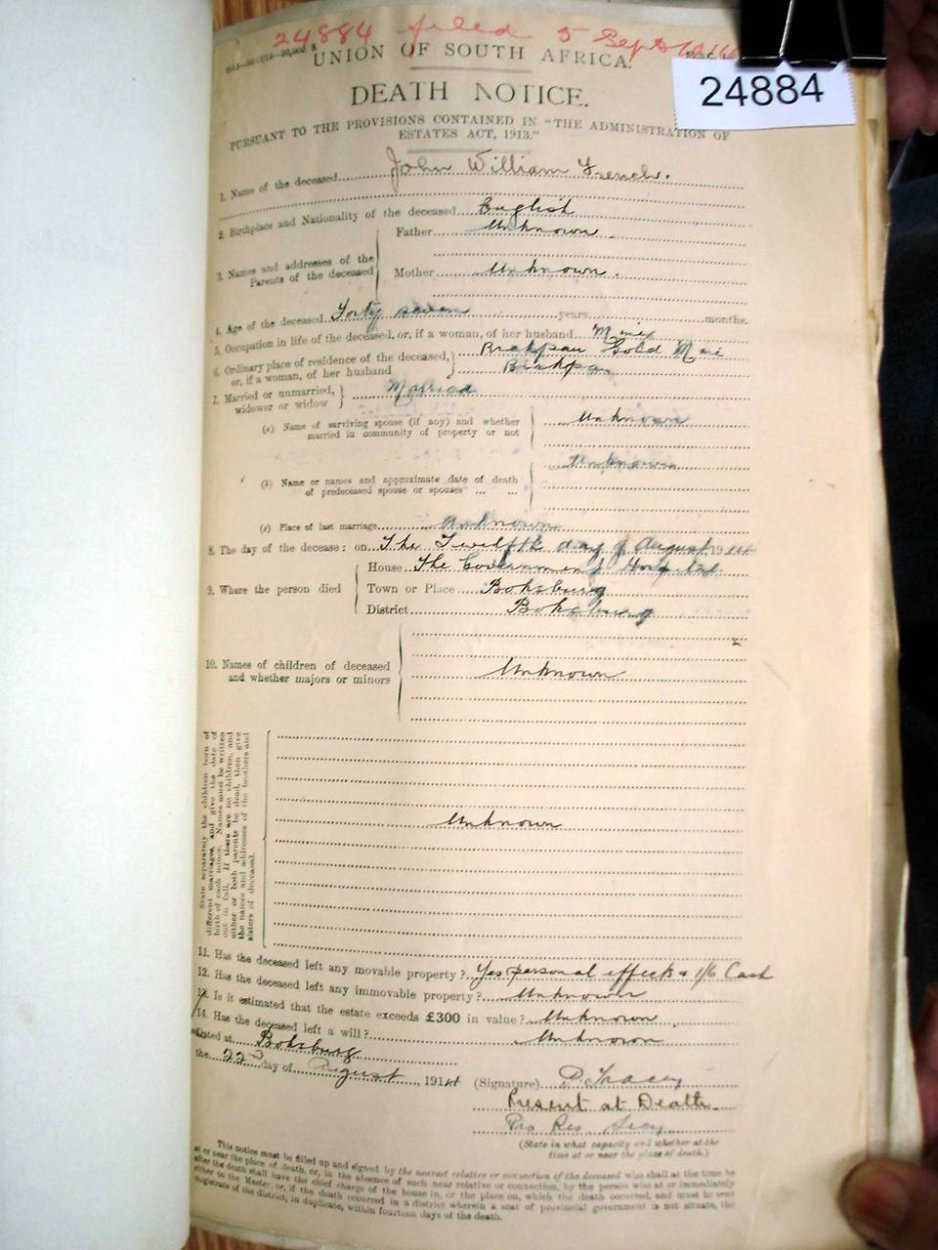 24884 filed 5 Sept
24884
UNION OF SOUTH AFRICA.
DEATH NOTICE.
PURSUANT TO THE PROVISIONS CONTAINED IN "THE ADMINISTRATION OF
ESTATES ACT, 1913."
1. Name of the deceased John William French.
2. Birthplace and Nationality of the deceased English
3. Names and addresses of the Parents of the deceased
Father Unknown
Mother Unknown.
4. Age of the deceased Forty seven years months.
5. Occupation in life of the deceased, or, if a woman, of her husband
6. Ordinary place of residence of the deceased, or, if a woman, of her husband
Brakpan Gold
Brakpan
7. Married or unmarried, widower or widow Married
(a) Name of surviving spouse (if any) and whether married in community of property or not
Unknown
Unknown
(b) Name or names and approximate date of death of predeceased spouse or spouses ... ...
(c) Place of last marriage Unknown
8. The day of the decease: on The Twelfth day of August 1914
9. Where the person died
House The Government Hospital
Town or Place Boksburg
District Boksburg
10. Names of children of deceased and whether majors or minors
Unknown
State separately the children born of
different marriages, and give the date of
birth of each minor. Names must be written
out in full. If there are no children, and
either or both parents be dead, then give
the names and addresses of the brothers and
sisters of deceased.
Unknown
11. Has the deceased left any movable property? Yes personal effects & 1/6 Cash
12. Has the deceased left any immovable property? Unknown
13. Is it estimated that the estate exceeds £300 in value? Unknown
14. Has the deceased left a will? Unknown
Dated at Boksburg
the 22nd day of August, 1914
(Signature) P. Tracey
Present at Death
Pro Res Secy
(State in what capacity and whether at the
time at or near the place of death.)
This notice must be filled up and signed by the nearest relative or connection of the deceased who shall at the time be
at or near the place of death, or, in the absence of such near relative or connection, by the person who at or immediately
after the death shall have the chief charge of the house in, or the place on, which the death occurred, and must be sent
either to the Master, or, if the death occurred in a district wherein a seat of provincial government is not situate, the
magistrate of the district, in duplicate, within fourteen days of the death.